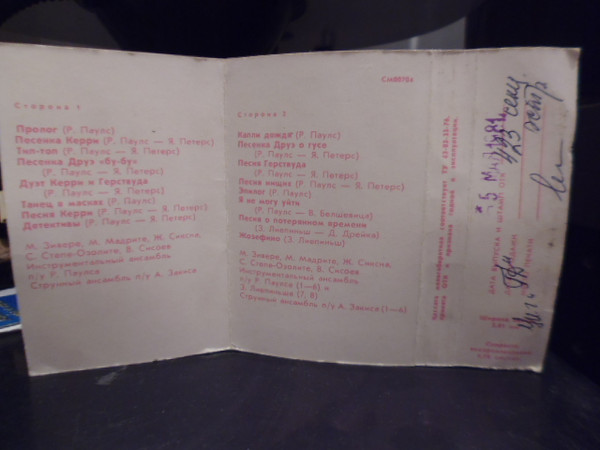 Сторона 1
Пролог (Р. Паулс)
Песенка Керри (Р. Паулс — Я. Петерс)
Тип-топ (Р. Паулс — Я. Петерс)
Песенка Друэ «бу-бу»
(Р. Паулс — Я. Петерс)
Дуэт Керри и Герствуда
(Р. Паулс — Я. Петерс)
Танец в масках (Р. Паулс)
Песня Керри (Р. Паулс — Я. Петерс)
Детективы (Р. Паулс — Я. Петерс)
М. Зивере, М. Мадрите, Ж. Сиксна,
С. Степе-Озолите, В. Сисоев
Инструментальный ансамбль
п/у Р. Паулса
Струнный ансамбль п/у А. Закиса
СМ00704
Сторона 2
Капли дождя (Р. Паулс)
Песенка Друэ о гусе
(Р. Паулс — Я. Петерс)
Песня Герствуда
(Р. Паулс — Я. Петерс)
Песня нищих (Р. Паулс — Я. Петерс)
Эпилог (Р. Паулс)
Я не могу уйти
(Р. Паулс — В. Белшевица)
Песня о потерянном времени
(З. Лиепиньш — Д. Дрейка)
Жозефина (З. Лиепиньш)
М. Зивере, В. Сисоев
Инструментальный ансамбль
п/у Р. Паулса (1—6) и
З. Лиепиньша (7, 8)
Струнный ансамбль п/у А. Закиса (1—6)
Кассета
соответствует ТУ
и признана годной к эксплуатации.
5 МАЙ 1981
23 секц